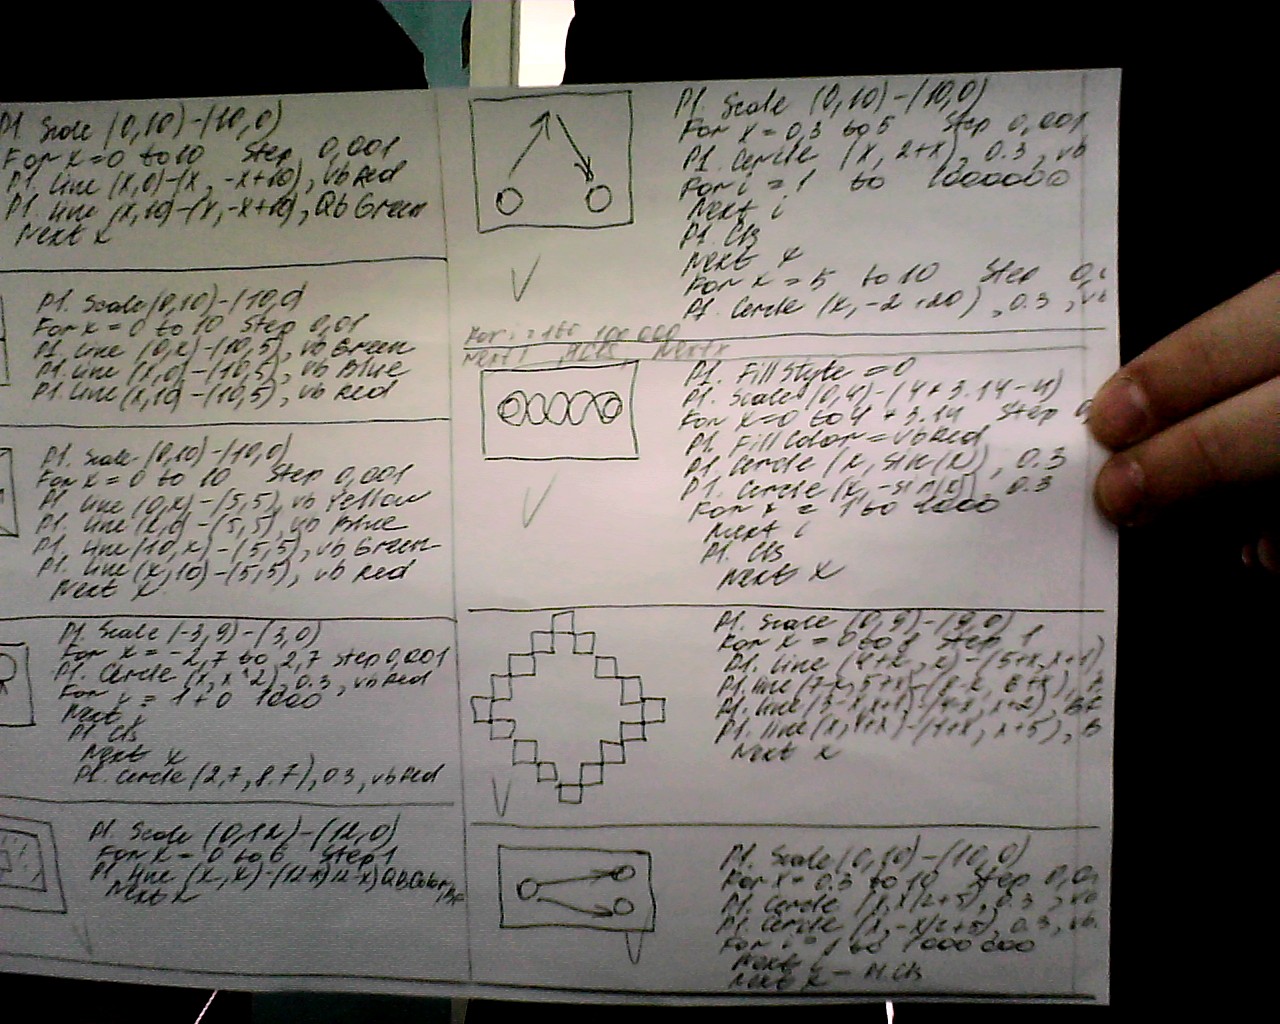 P1. Scale (0,10)-(10,0)
For x=0 to 10 Step 0,001
P1. Line (x,0)-(x, -x+10), vb Red
P1. Line (x,10)-(x,-x+10), Qb Green
Next x
P1. Scale (0,10)-(10,0
For x = 0 to 10 Step 0,01
P1. Line (0,x)-(10,5), vb Green
P1. Line (x,0)-(10,5), vb Blue
P1. Line (x,10)-(10,5), vb Red
P1. Scale (0,10)-(10,0)
For x = 0 to 10 Step 0,001
P1 Line (0,x)-(5,5), vb Yellow
P1. Line (x,0)-(5,5), vb Blue
P1. Line (10,x)-(5,5), vb Green
P1. Line (x,10)-(5,5), vb Red
Next x
P1. Scale (-3,9)-(3,0)
For x = -2,7 to 2,7 Step 0,001
P1. Cercle (x, x^2), 0.3, vb Red
For = 1 to 1000
Next
P1 Cls
Next x
P1. Cercle (2,7, 8,7), 0.3, vb Red
P1. Scale (0,12)-(12,0)
For x = 0 to 6 Step 1
P1. Line (x,x)-(12-x,12-x) QBColor, BF
Next x
P1. Scale (0,10)-(10,0)
For x = 0,3 to 5 Step 0,001
P1. Cercle (x, 2+x), 0.3, vb
For i = 1 to 1000000
Next i
P1. Cls
Next x
For x = 5 to 10 Step 0,
P1. Cercle (x, -2 +20), 0.3, vb
For i = 1 to 100 000
Next i P1Cls, Next x
P1. Fill Style = 0
P1. Scale (0,4)-(4+3.14-4)
For x=0 to 4 + 3.14 Step 0,
P1. Fill Color = vb Red
P1. Cercle (x, sin(x)), 0.3
P1. Cercle (x, -sin(x)), 0.3
For x = 1 to 1000
Next i
P1. Cls
Next x
P1. Scale (0,9)-(9,0)
For x = 0 to Step 1
P1. Line (4+x, x)-(5+x, x+1)
P1. Line (7-x, 5+x)-(8-x, 6+x),
P1. Line (3-x, x+1)-(4-x, x+2), BF
P1. Line (x, 4+x)-(1+x, x+5), B
Next x
P1. Scale (0,10)-(10,0)
For x = 0.3 to 10 Step 0,0
P1. Cercle (x, x/2+5), 0.3, vb
P1. Cercle (x, -x/2+5), 0.3, vb.
For i = 1 to 1000 000
Next i
Next x - P1.Cls